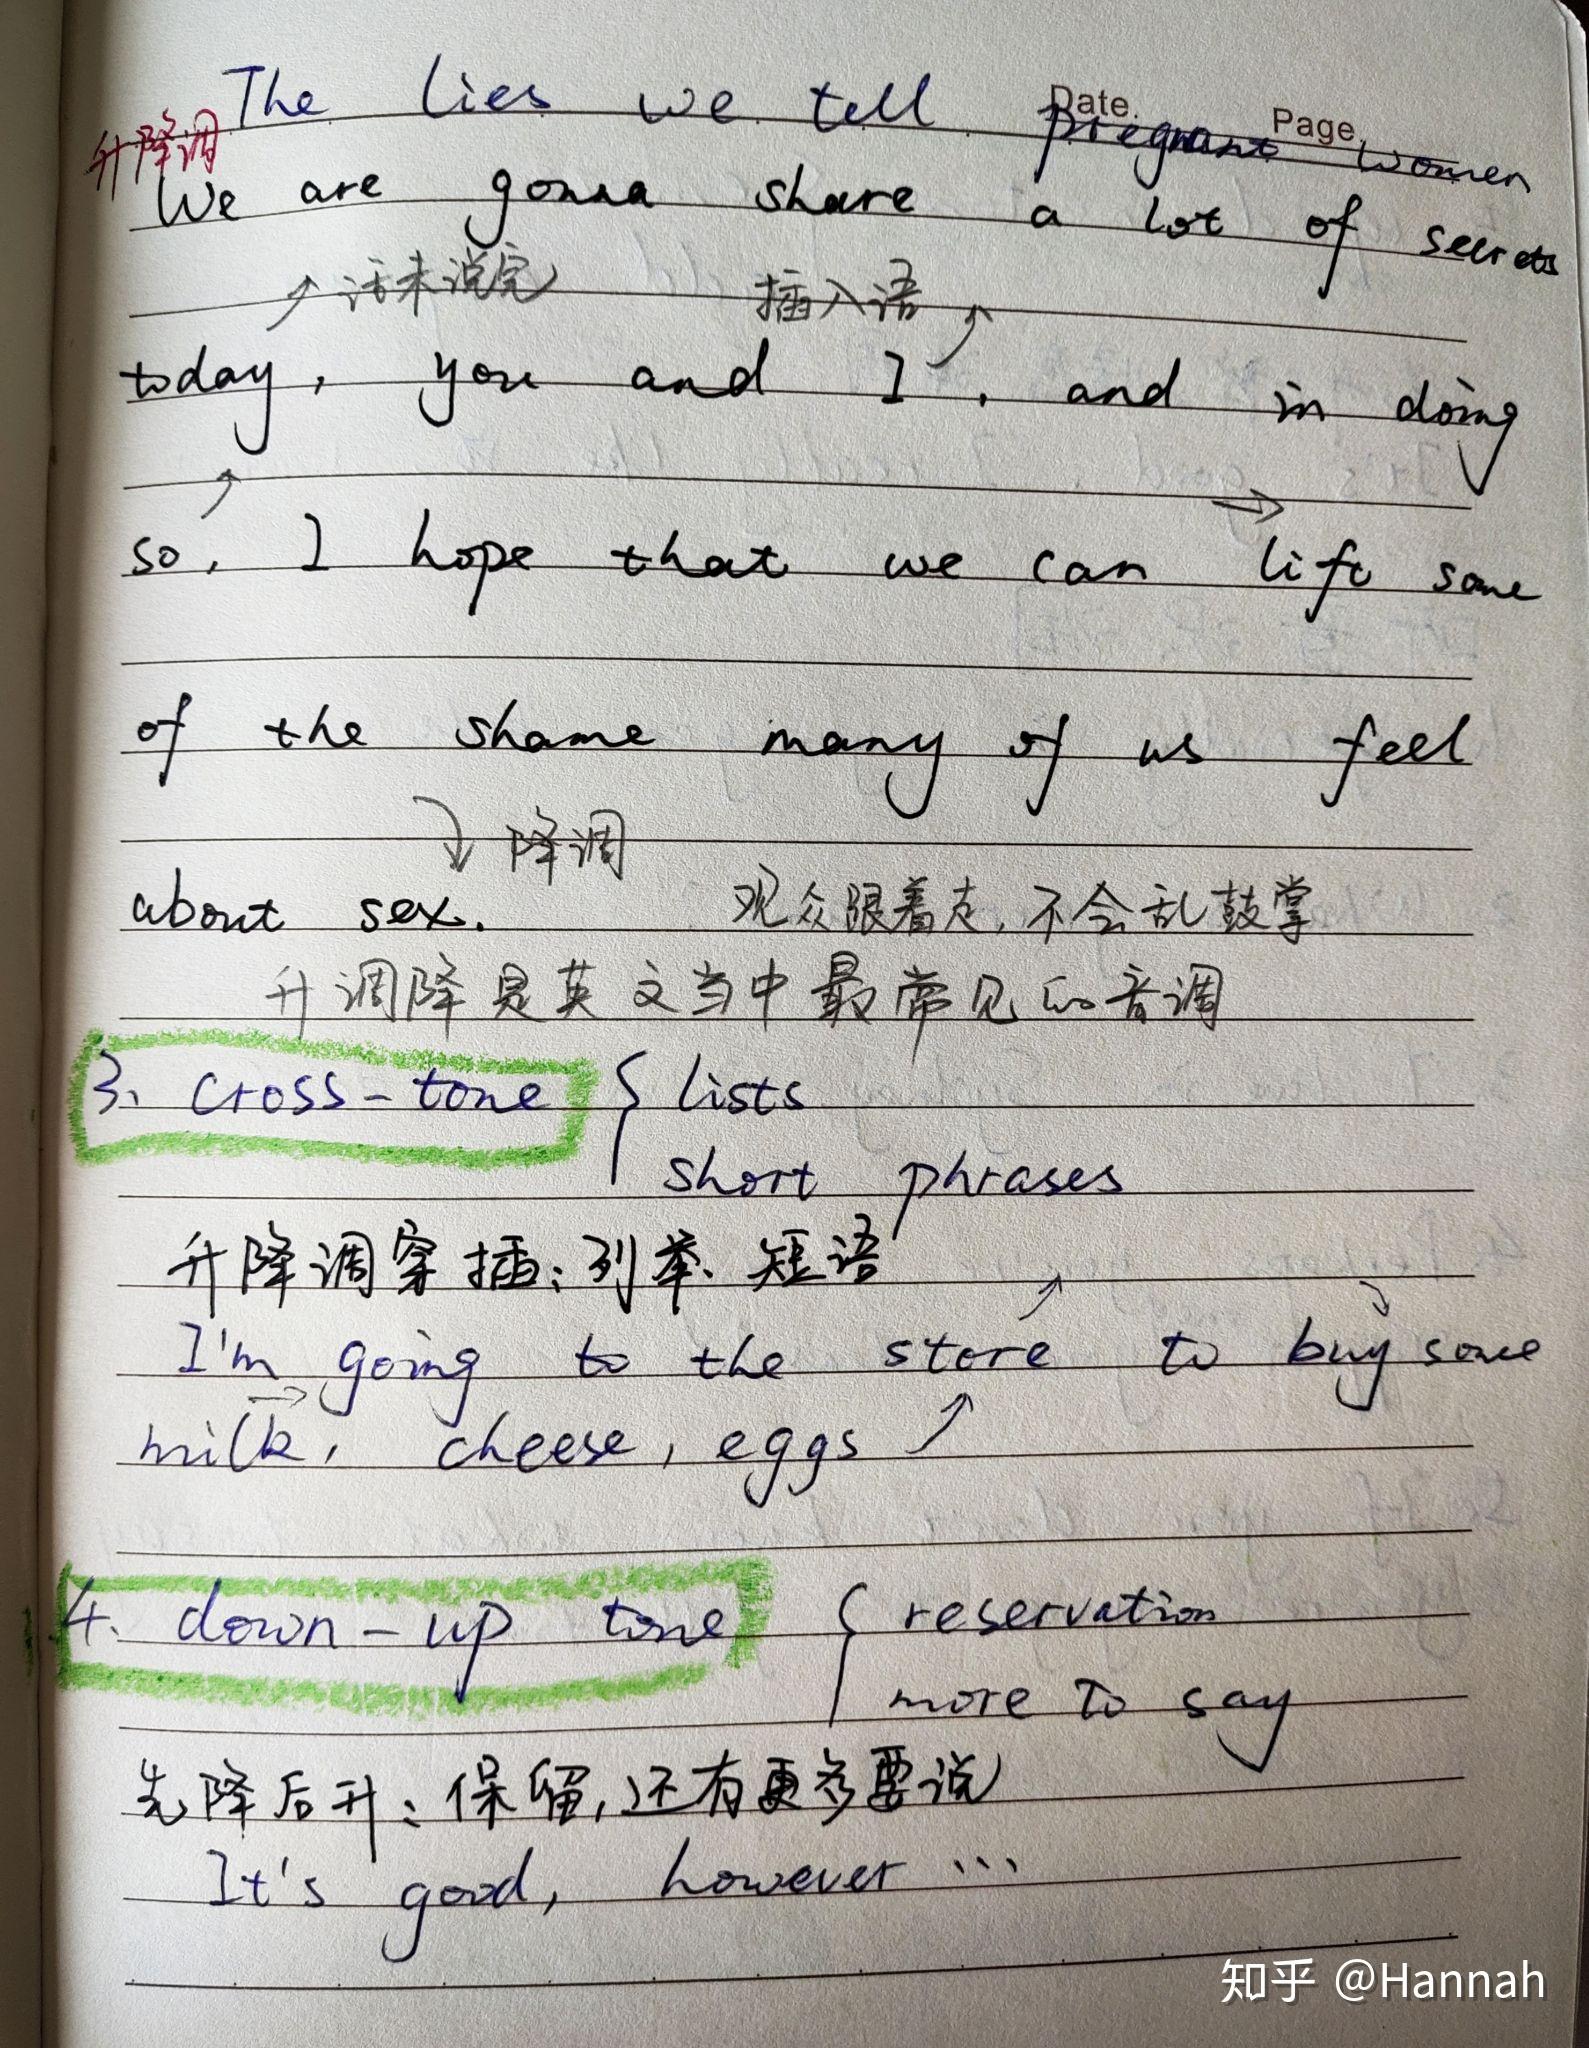 Date.
Page.
The lies we tell pregnant women
升降调
We are gonna share a lot of secrets
↗ 话未说完 插入语 ↗
today, you and I, and in doing
↗ →
so, I hope that we can lift some
of the shame many of us feel
降调
about sex. 观众跟着走,不会乱鼓掌
升调降是英文当中最常见的音调
3、cross-tone { lists
short phrases
升降调穿插:列举、短语
↗ ↘
I'm going to the store to buy some
→ ↗
milk, cheese, eggs
4. down-up tone { reservation
more to say
先降后升:保留,还有更多要说
It's good, however ...
知乎 @Hannah